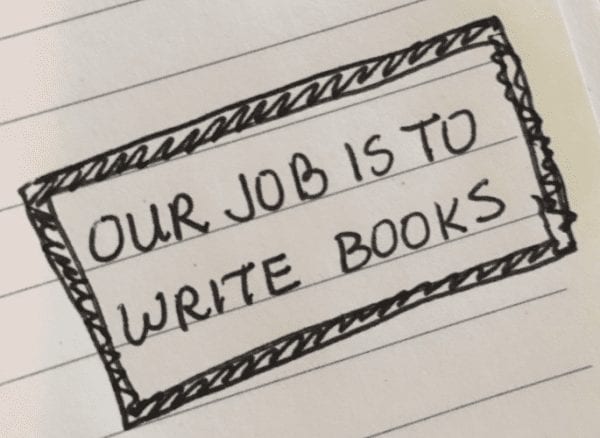 OUR JOB IS TO
WRITE BOOKS